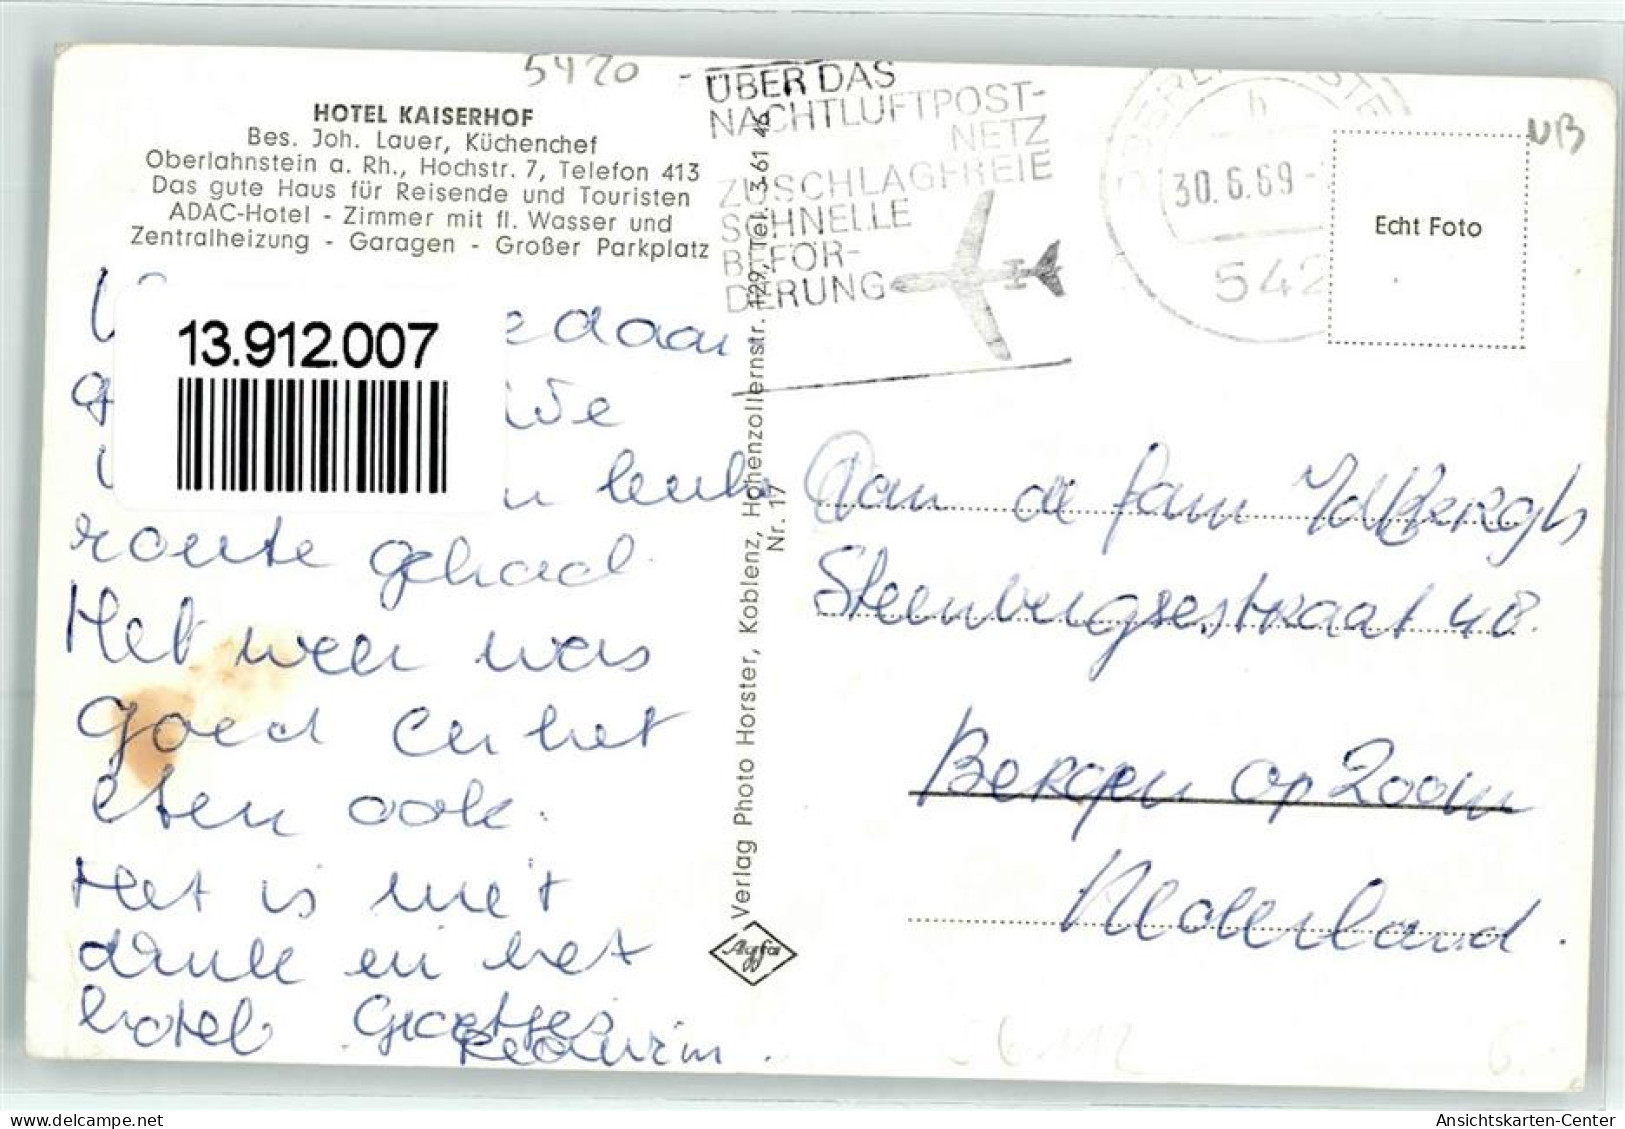 5420
HOTEL KAISERHOF
Bes. Joh. Lauer, Küchenchef
Oberlahnstein a. Rh., Hochstr. 7, Telefon 413
Das gute Haus für Reisende und Touristen
ADAC-Hotel - Zimmer mit fl. Wasser und
Zentralheizung - Garagen - Großer Parkplatz
ÜBER DAS
NACHTLUFTPOST-
NETZ
ZUSCHLAGFREIE
SCHNELLE
BEFÖR-
DERUNG
30.6.69
542
h
NB
Echt Foto
13.912.007
daar
leuke
route gehad.
Het weer was
goed en het
eten ook.
Het is niet
druk in het
hotel Groetjes
Verlag Photo Horster, Koblenz, Hohenzollernstr. 129, Tel. 3 61 46
Nr. 17
Agfa
Aan de fam
Steenbergsestraat 48.
Bergen op Zoom
Nederland.
Ansichtskarten-Center